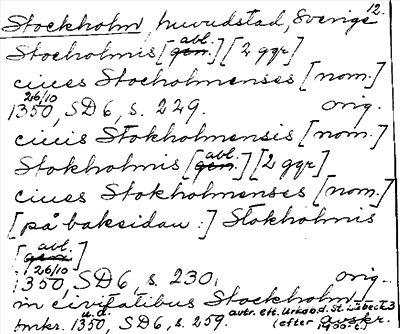 12.
Stockholm, huvudstad, Sverige
Stocholmis [gen. abl.] [2 ggr]
ciues Stocholmenses [nom.]
26/10 1350, SD 6, s. 229. orig.
ciuis Stokholmensis [nom.]
Stokholmis [gen. abl.] [2 ggr]
ciues Stokholmenses [nom.]
[på baksidan:] Stokholmis
[gen. abl.]
26/10 1350, SD 6, s. 230, orig.
in civitatibus Stockholm,
u.d. 1350, SD 6, s. 259. avtr. eft. Urkb. d. St. Lübeck 3
(efter avskr.